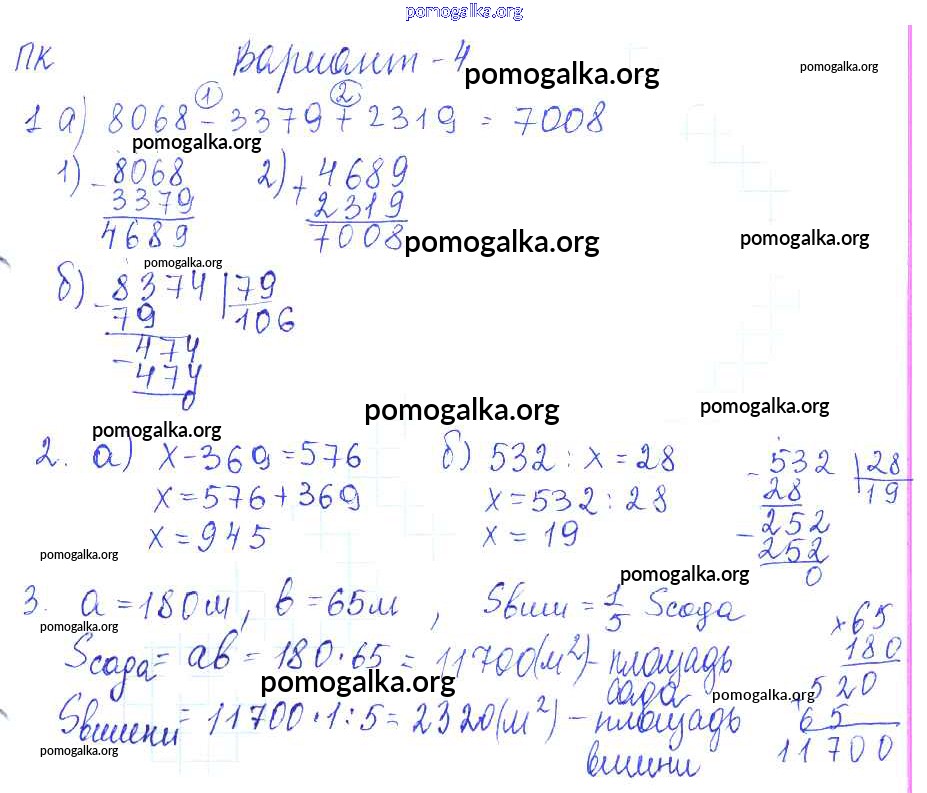 pomogalka.org
ПК Вариант - 4
pomogalka.org pomogalka.org
1 2
1 а) 8068 - 3379 + 2319 = 7008
pomogalka.org
1) - 8068 2) + 4689
3379 2319
4689 7008
pomogalka.org pomogalka.org
pomogalka.org
б) - 8374 | 79
79 106
- 474
474
0
pomogalka.org pomogalka.org
pomogalka.org
2. а) x - 369 = 576 б) 532 : x = 28 - 532 | 28
x = 576 + 369 x = 532 : 28 28 19
x = 945 x = 19 - 252
252
0
pomogalka.org pomogalka.org
3. a = 180 м, b = 65 м, Sвиш = 1/5 Sсада × 65
pomogalka.org
Sсада = ab = 180 · 65 = 11700 (м²) - площадь 180
сада + 520
pomogalka.org pomogalka.org
Sвишни = 11700 · 1 : 5 = 2320 (м²) - площадь 65
вишни 11700
pomogalka.org